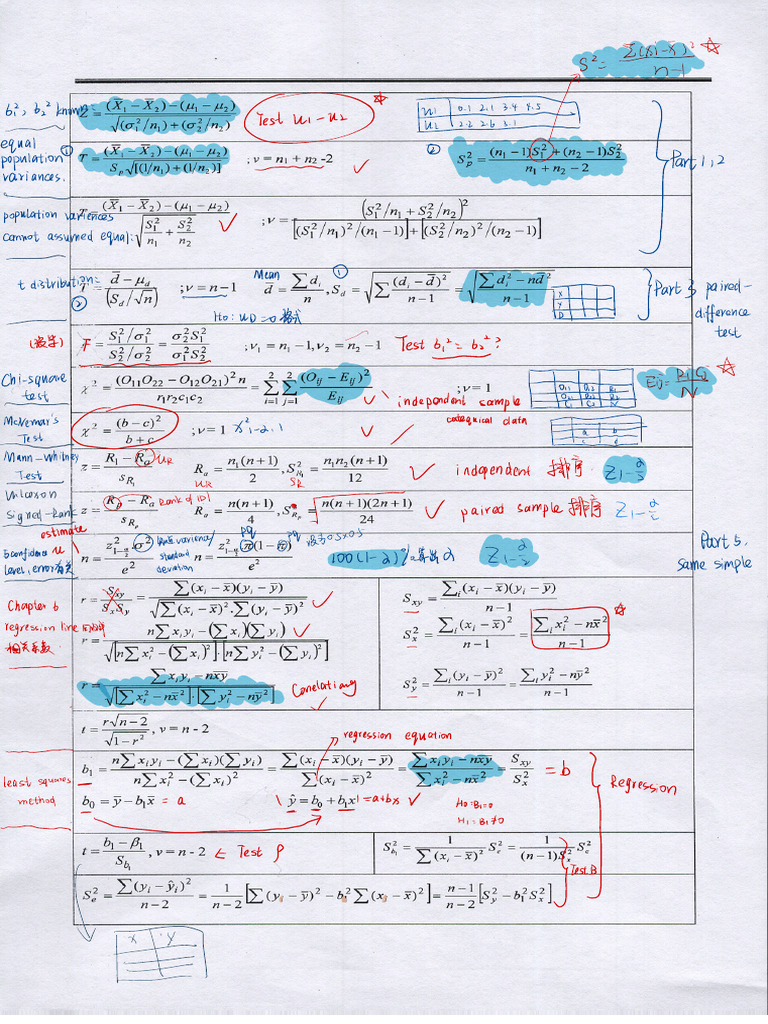 S² = Σ(xi-x̄)² / n-1 ☆
б₁², б₂² known: Z = (X̄₁ − X̄₂) − (μ₁ − μ₂) / √(σ₁²/n₁) + (σ₂²/n₂)
Test u₁-u₂
U1 0.1 2.1 3.4 4.5
U2 2.2 2.6 3.1
equal population variances. ① T = (X̄₁ − X̄₂) − (μ₁ − μ₂) / S_p √[(1/n₁) + (1/n₂)] ; v = n₁ + n₂ -2
② S_p² = (n₁ −1)S₁² + (n₂ −1)S₂² / n₁ + n₂ − 2
Part 1, 2
population variences cannot assumed equal: T = (X̄₁ − X̄₂) − (μ₁ − μ₂) / √(S₁²/n₁ + S₂²/n₂) ; v = (S₁²/n₁ + S₂²/n₂)² / [(S₁²/n₁)²/(n₁ −1)] + [(S₂²/n₂)²/(n₂ −1)]
t distribution: T = d̄ − μ_d / (S_d/√n) ; v = n − 1
② Mean d̄ = Σd_i / n, ① S_d = √(Σ(d_i − d̄)² / n − 1) = √(Σd_i² − nd̄² / n − 1)
Ho: uD = 0
X
Y
D
Part 3 paired-difference test
F = S₁²/σ₁² / S₂²/σ₂² = σ₂²S₁² / σ₁²S₂² ; v₁ = n₁ −1, v₂ = n₂ −1 Test б₁² = б₂² ?
Chi-square test χ² = (O₁₁O₂₂ − O₁₂O₂₁)² n / r₁r₂c₁c₂ = Σ(i=1 to 2) Σ(j=1 to 2) (O_ij − E_ij)² / E_ij ; v = 1
independent sample
Eij = RiCj / N ☆
McNemar's Test χ² = (b − c)² / b + c ; v = 1 X²1-2, 1
categorical data
a b
c d
Mann-Whitney Test z = R₁ − R_a / s_R₁ UR R_a = n₁(n + 1) / 2, S²_R₁ = n₁n₂(n + 1) / 12
UR SR independent 排序 Z1-α/2
Wilcoxon Signed-Rank z = R_p − R_a / s_Rp Rank of |D| R_a = n(n + 1) / 4, S²_Rp = n(n + 1)(2n + 1) / 24
paired sample 排序 Z1-α/2
estimate u
confidence level, error n = z²₁₋α/₂ σ² / e² variance/ standard deviation n = z²₁₋α/₂ π(1 − π) / e² pq
100(1-α)% Z1-α/2
Part 5, same simple
Chapter 6 regression line
相关系数
r = S_xy / S_xS_y = Σ(x_i − x̄)(y_i − ȳ) / √Σ(x_i − x̄)² · Σ(y_i − ȳ)²
S_xy = Σ_i(x_i − x̄)(y_i − ȳ) / n − 1
r = nΣx_iy_i − (Σx_i)(Σy_i) / √[nΣx_i² − (Σx_i)²]·[nΣy_i² − (Σy_i)²]
S_x² = Σ_i(x_i − x̄)² / n − 1 = Σ_i x_i² − nx̄² / n − 1 ☆
r = Σx_iy_i − nx̄ȳ / √[Σx_i² − nx̄²]·[Σy_i² − nȳ²]
S_y² = Σ_i(y_i − ȳ)² / n − 1 = Σ_i y_i² − nȳ² / n − 1
t = r√n − 2 / √1 − r², v = n - 2
regression equation
least squares method
b₁ = nΣx_iy_i − (Σx_i)(Σy_i) / nΣx_i² − (Σx_i)² = Σ(x_i − x̄)(y_i − ȳ) / Σ(x_i − x̄)² = Σx_iy_i − nx̄ȳ / Σx_i² − nx̄² = S_xy / S_x² = b
Regression
b₀ = ȳ − b₁x̄ = a
ŷ = b₀ + b₁x = a+bx
Ho: B1=0
H1: B1≠0
t = b₁ − β₁ / S_b₁, v = n - 2 ← Test ρ
S²_b₁ = 1 / Σ(x_i − x̄)² S_e² = 1 / (n−1)S_x² S_e²
Test B
S_e² = Σ(y_i − ŷ_i)² / n − 2 = 1 / n − 2 [Σ(y_i − ȳ)² − b₁²Σ(x_i − x̄)²] = n − 1 / n − 2 [S_y² − b₁²S_x²]
X Y